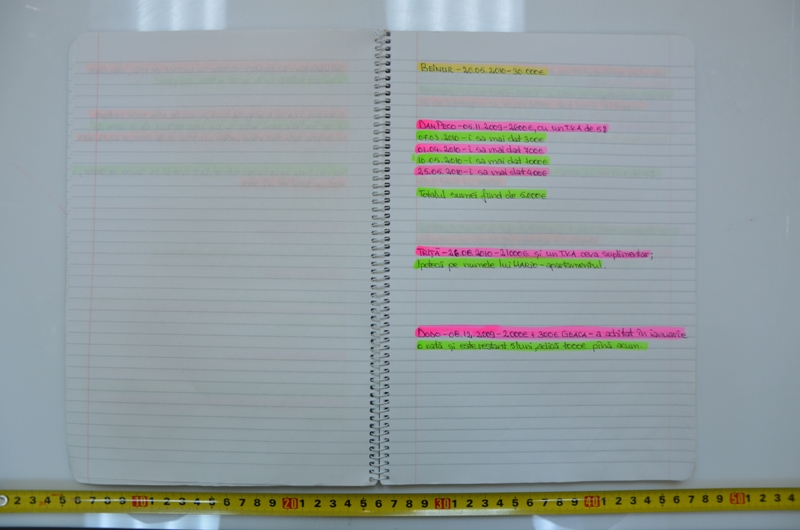 BELNUR - 20.05.2010 - 30.000€
DAN PECO - 05.11.2009 - 2600€, cu un TVA de 5%
07.03.2010 - i sa mai dat 300€
01.04.2010 - i sa mai dat 700€
10.05.2010 - i sa mai dat 1000€
25.05.2010 - i sa mai dat 400€
Totalul sumei fiind de 5.000€
- 28.08.2010 - 21000€ și un TVA ceva suplimentar;
Ipotecă pe numele lui MARIO - apartamentul.
DODO - 08.12.2009 - 2000€ + 300€ - a achitat în ianuarie
o rată și este restant 5 luni, adică 1000€ pînă acum.
2 3 4 5 6 7 8 9 10 1 2 3 4 5 6 7 8 9 20 1 2 3 4 5 6 7 8 9 30 1 2 3 4 5 6 7 8 9 40 1 2 3 4 5 6 7 8 9 50 1 2 3 4